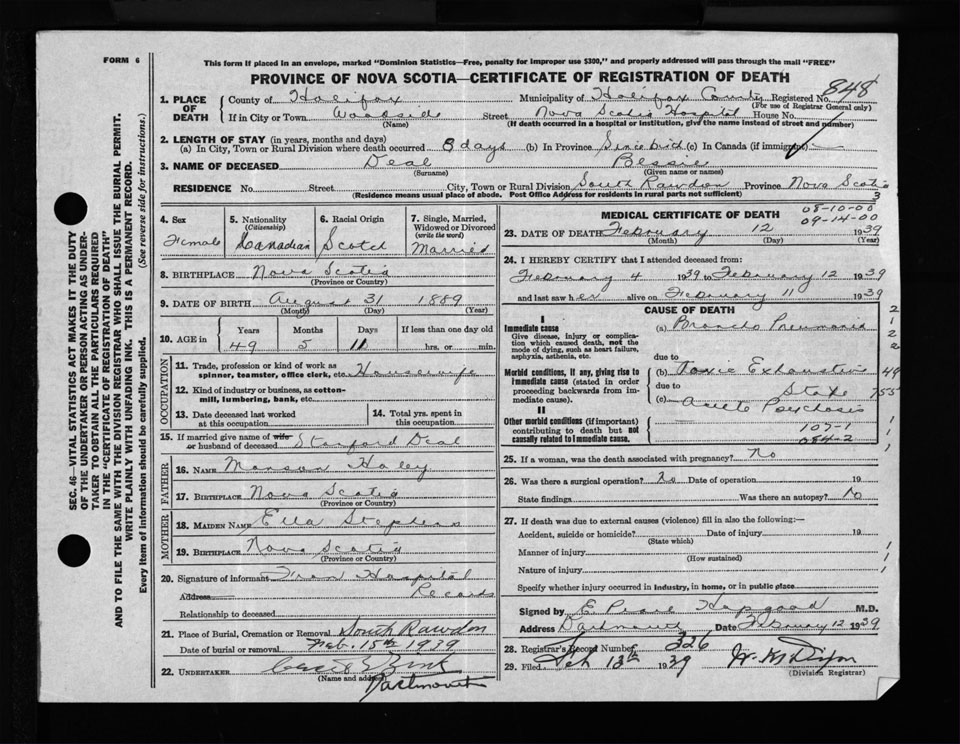 FORM 6
This form if placed in an envelope, marked "Dominion Statistics—Free, penalty for improper use $300," and properly addressed will pass through the mail "FREE"
PROVINCE OF NOVA SCOTIA—CERTIFICATE OF REGISTRATION OF DEATH
SEC. 46— VITAL STATISTICS ACT MAKES IT THE DUTY
OF THE UNDERTAKER OR PERSON ACTING AS UNDER-
TAKER TO OBTAIN ALL THE PARTICULARS REQUIRED
IN THE "CERTIFICATE OF REGISTRATION OF DEATH"
AND TO FILE THE SAME WITH THE DIVISION REGISTRAR WHO SHALL ISSUE THE BURIAL PERMIT.
WRITE PLAINLY WITH UNFADING INK. THIS IS A PERMANENT RECORD.
Every item of information should be carefully supplied. (See reverse side for instructions.)
1. PLACE OF DEATH
County of Halifax Municipality of Halifax County Registered No. 848
(For use of Registrar General only)
If in City or Town Woodside Street Nova Scotia Hospital House No.
(Name) (If death occurred in a hospital or institution, give the name instead of street and number)
2. LENGTH OF STAY (in years, months and days)
(a) In City, Town or Rural Division where death occurred 8 days (b) In Province Since birth (c) In Canada (if immigrant) —
3. NAME OF DECEASED Deal Bessie
(Surname) (Given name or names)
RESIDENCE No. Street City, Town or Rural Division South Rawdon Province Nova Scotia
(Residence means usual place of abode. Post Office Address for residents in rural parts not sufficient)
3
4. Sex Female
5. Nationality (Citizenship) Canadian
6. Racial Origin Scotch
7. Single, Married, Widowed or Divorced (write the word) Married
8. BIRTHPLACE Nova Scotia
(Province or Country)
9. DATE OF BIRTH August 31 1889
(Month) (Day) (Year)
10. AGE in Years Months Days If less than one day old
49 5 11 hrs. or min.
OCCUPATION
11. Trade, profession or kind of work as spinner, teamster, office clerk, etc. Housewife
12. Kind of industry or business, as cotton-mill, lumbering, bank, etc.
13. Date deceased last worked at this occupation
14. Total yrs. spent in this occupation
15. If married give name of wife or husband of deceased Deal
FATHER
16. NAME Haley
17. BIRTHPLACE Nova Scotia
(Province or Country)
MOTHER
18. MAIDEN NAME Ella Stephens
19. BIRTHPLACE Nova Scotia
(Province or Country)
20. Signature of informant From Hospital
Address Records
Relationship to deceased
21. Place of Burial, Cremation or Removal South Rawdon
Date of burial or removal Feb. 15th 1939
22. UNDERTAKER Zink
(Name and address) Dartmouth
MEDICAL CERTIFICATE OF DEATH
08-10-00
09-14-00
23. DATE OF DEATH February 12 1939
(Month) (Day) (Year)
24. I HEREBY CERTIFY that I attended deceased from:
February 4 1939 to February 12 1939
and last saw her alive on February 11 1939
CAUSE OF DEATH
I
Immediate cause (a) Broncho Pneumonia
Give disease, injury or complication which caused death, not the mode of dying, such as heart failure, asphyxia, asthenia, etc.
due to
Morbid conditions, if any, giving rise to immediate cause (stated in order proceeding backwards from immediate cause). (b) Toxic Exhaustive
due to State
(c) Acute Psychosis
II
Other morbid conditions (if important) contributing to death but not causally related to immediate cause.
107-1
084-2
25. If a woman, was the death associated with pregnancy? No
26. Was there a surgical operation? No Date of operation 19
State findings Was there an autopsy? No
27. If death was due to external causes (violence) fill in also the following:—
Accident, suicide or homicide? Date of injury 19
(State which)
Manner of injury
(How sustained)
Nature of injury
Specify whether injury occurred in industry, in home, or in public place
Signed by E. Hopgood M.D.
Address Dartmouth Date February 12 1939
28. Registrar's Record Number 226
29. Filed Feb 13th 1939 Dixon
(Division Registrar)